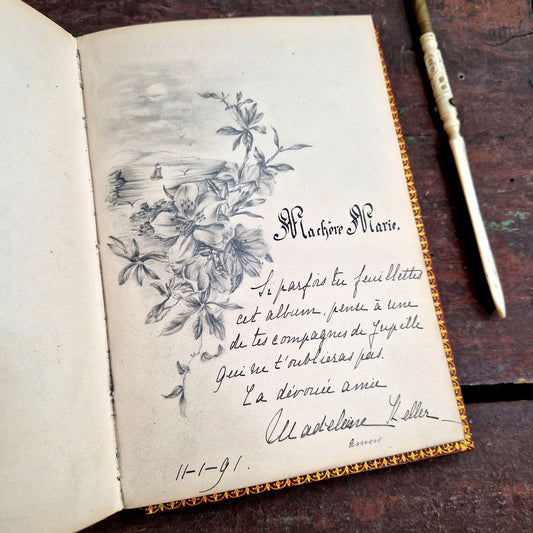 Machère Marie.
Si parfois tu feuillettes
cet album, pense à une
de tes compagnes de Jupille
qui ne t'oublieras pas.
Ta dévouée amie
Madeleine Keller
Anvers
11-1-91.